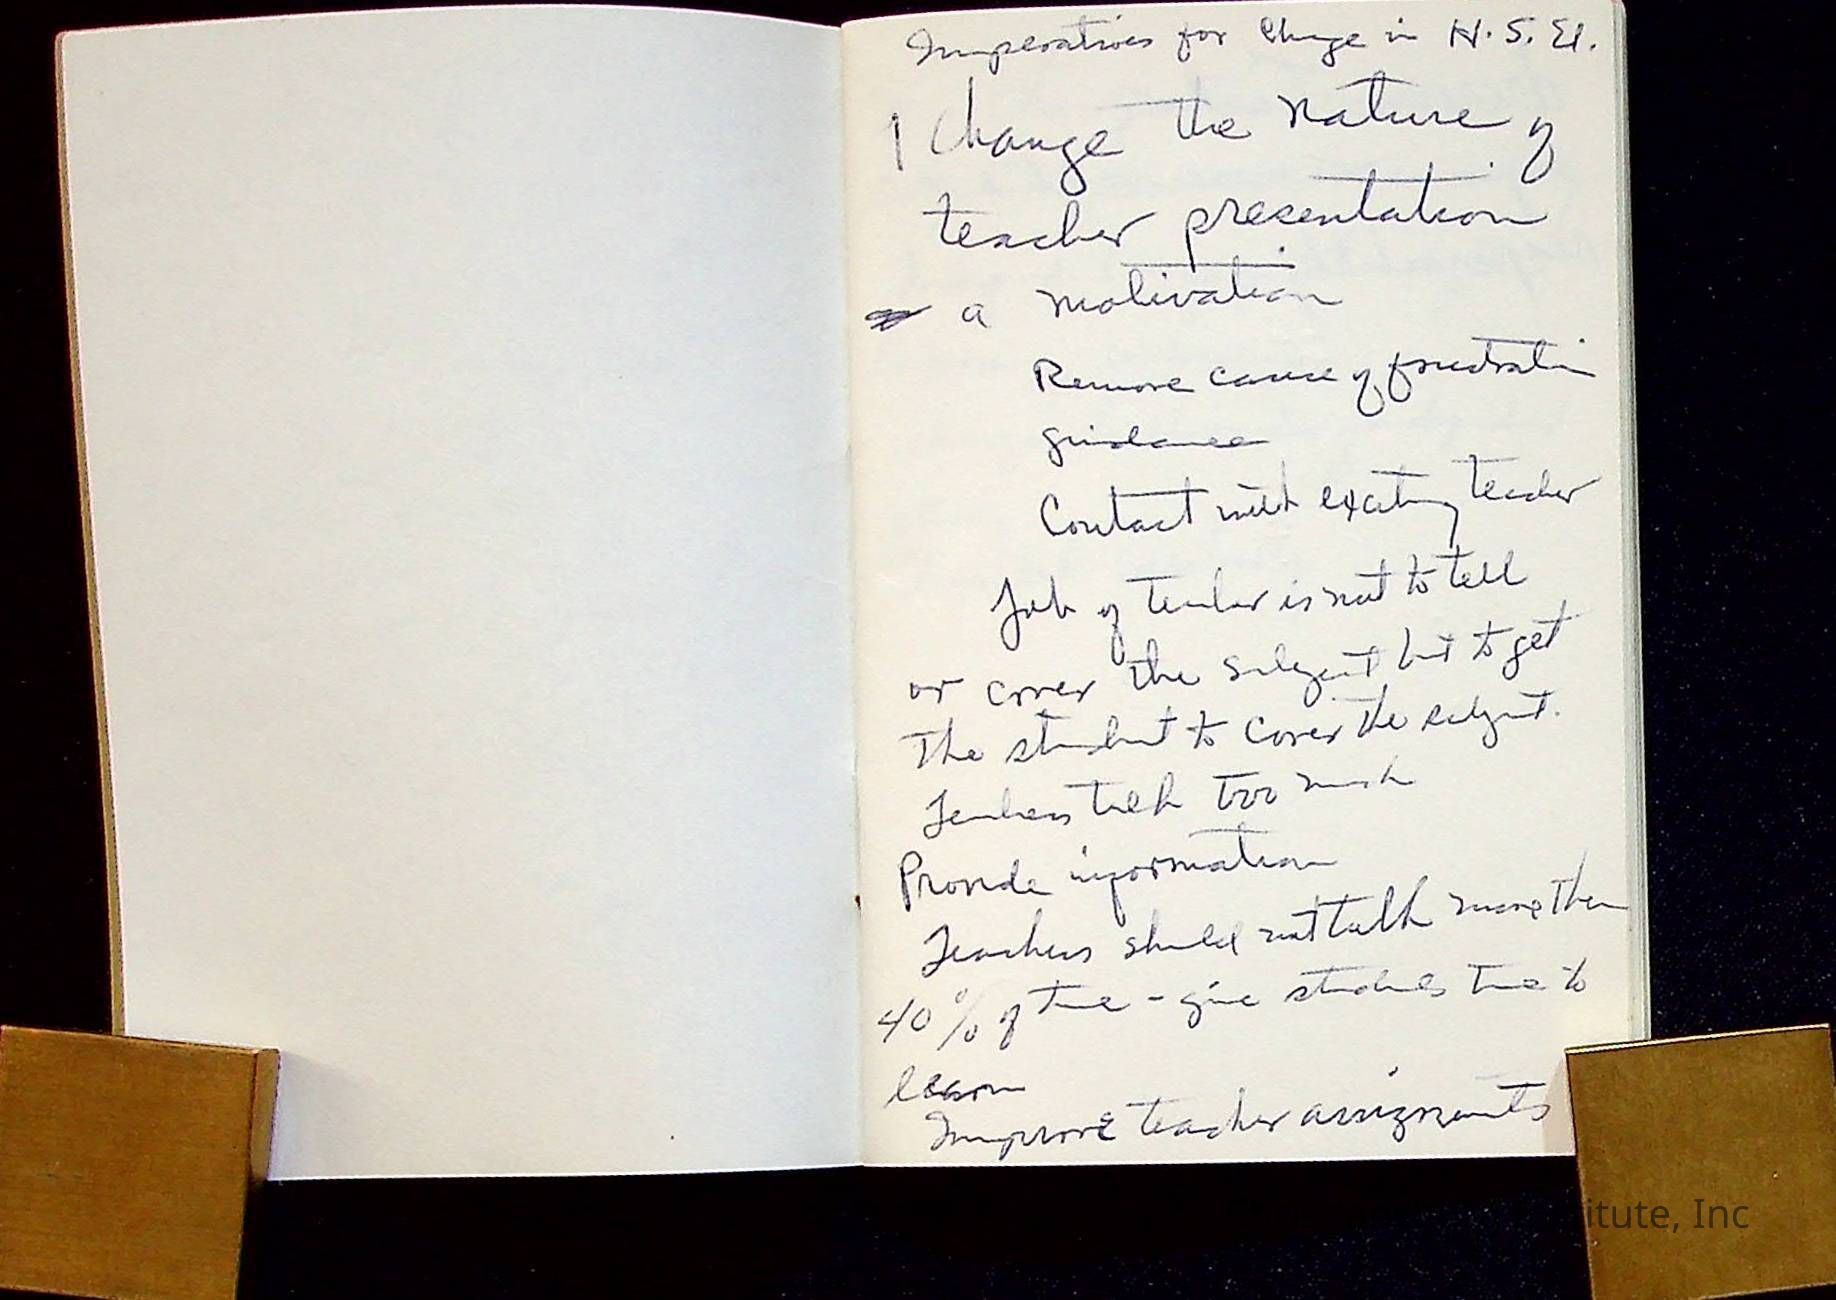 Imperatives for Change in H.S. Ed.
1 Change the nature of
teacher presentation
a motivation
Remove cause of frustration
guidance
Contact with exciting teacher
Job of teacher is not to tell
or cover the subject but to get
the student to cover the subject.
Teachers talk too much
Provide information
Teachers should not talk more than
40% of time - give students time to
learn
Improve teacher assignments
itute, Inc